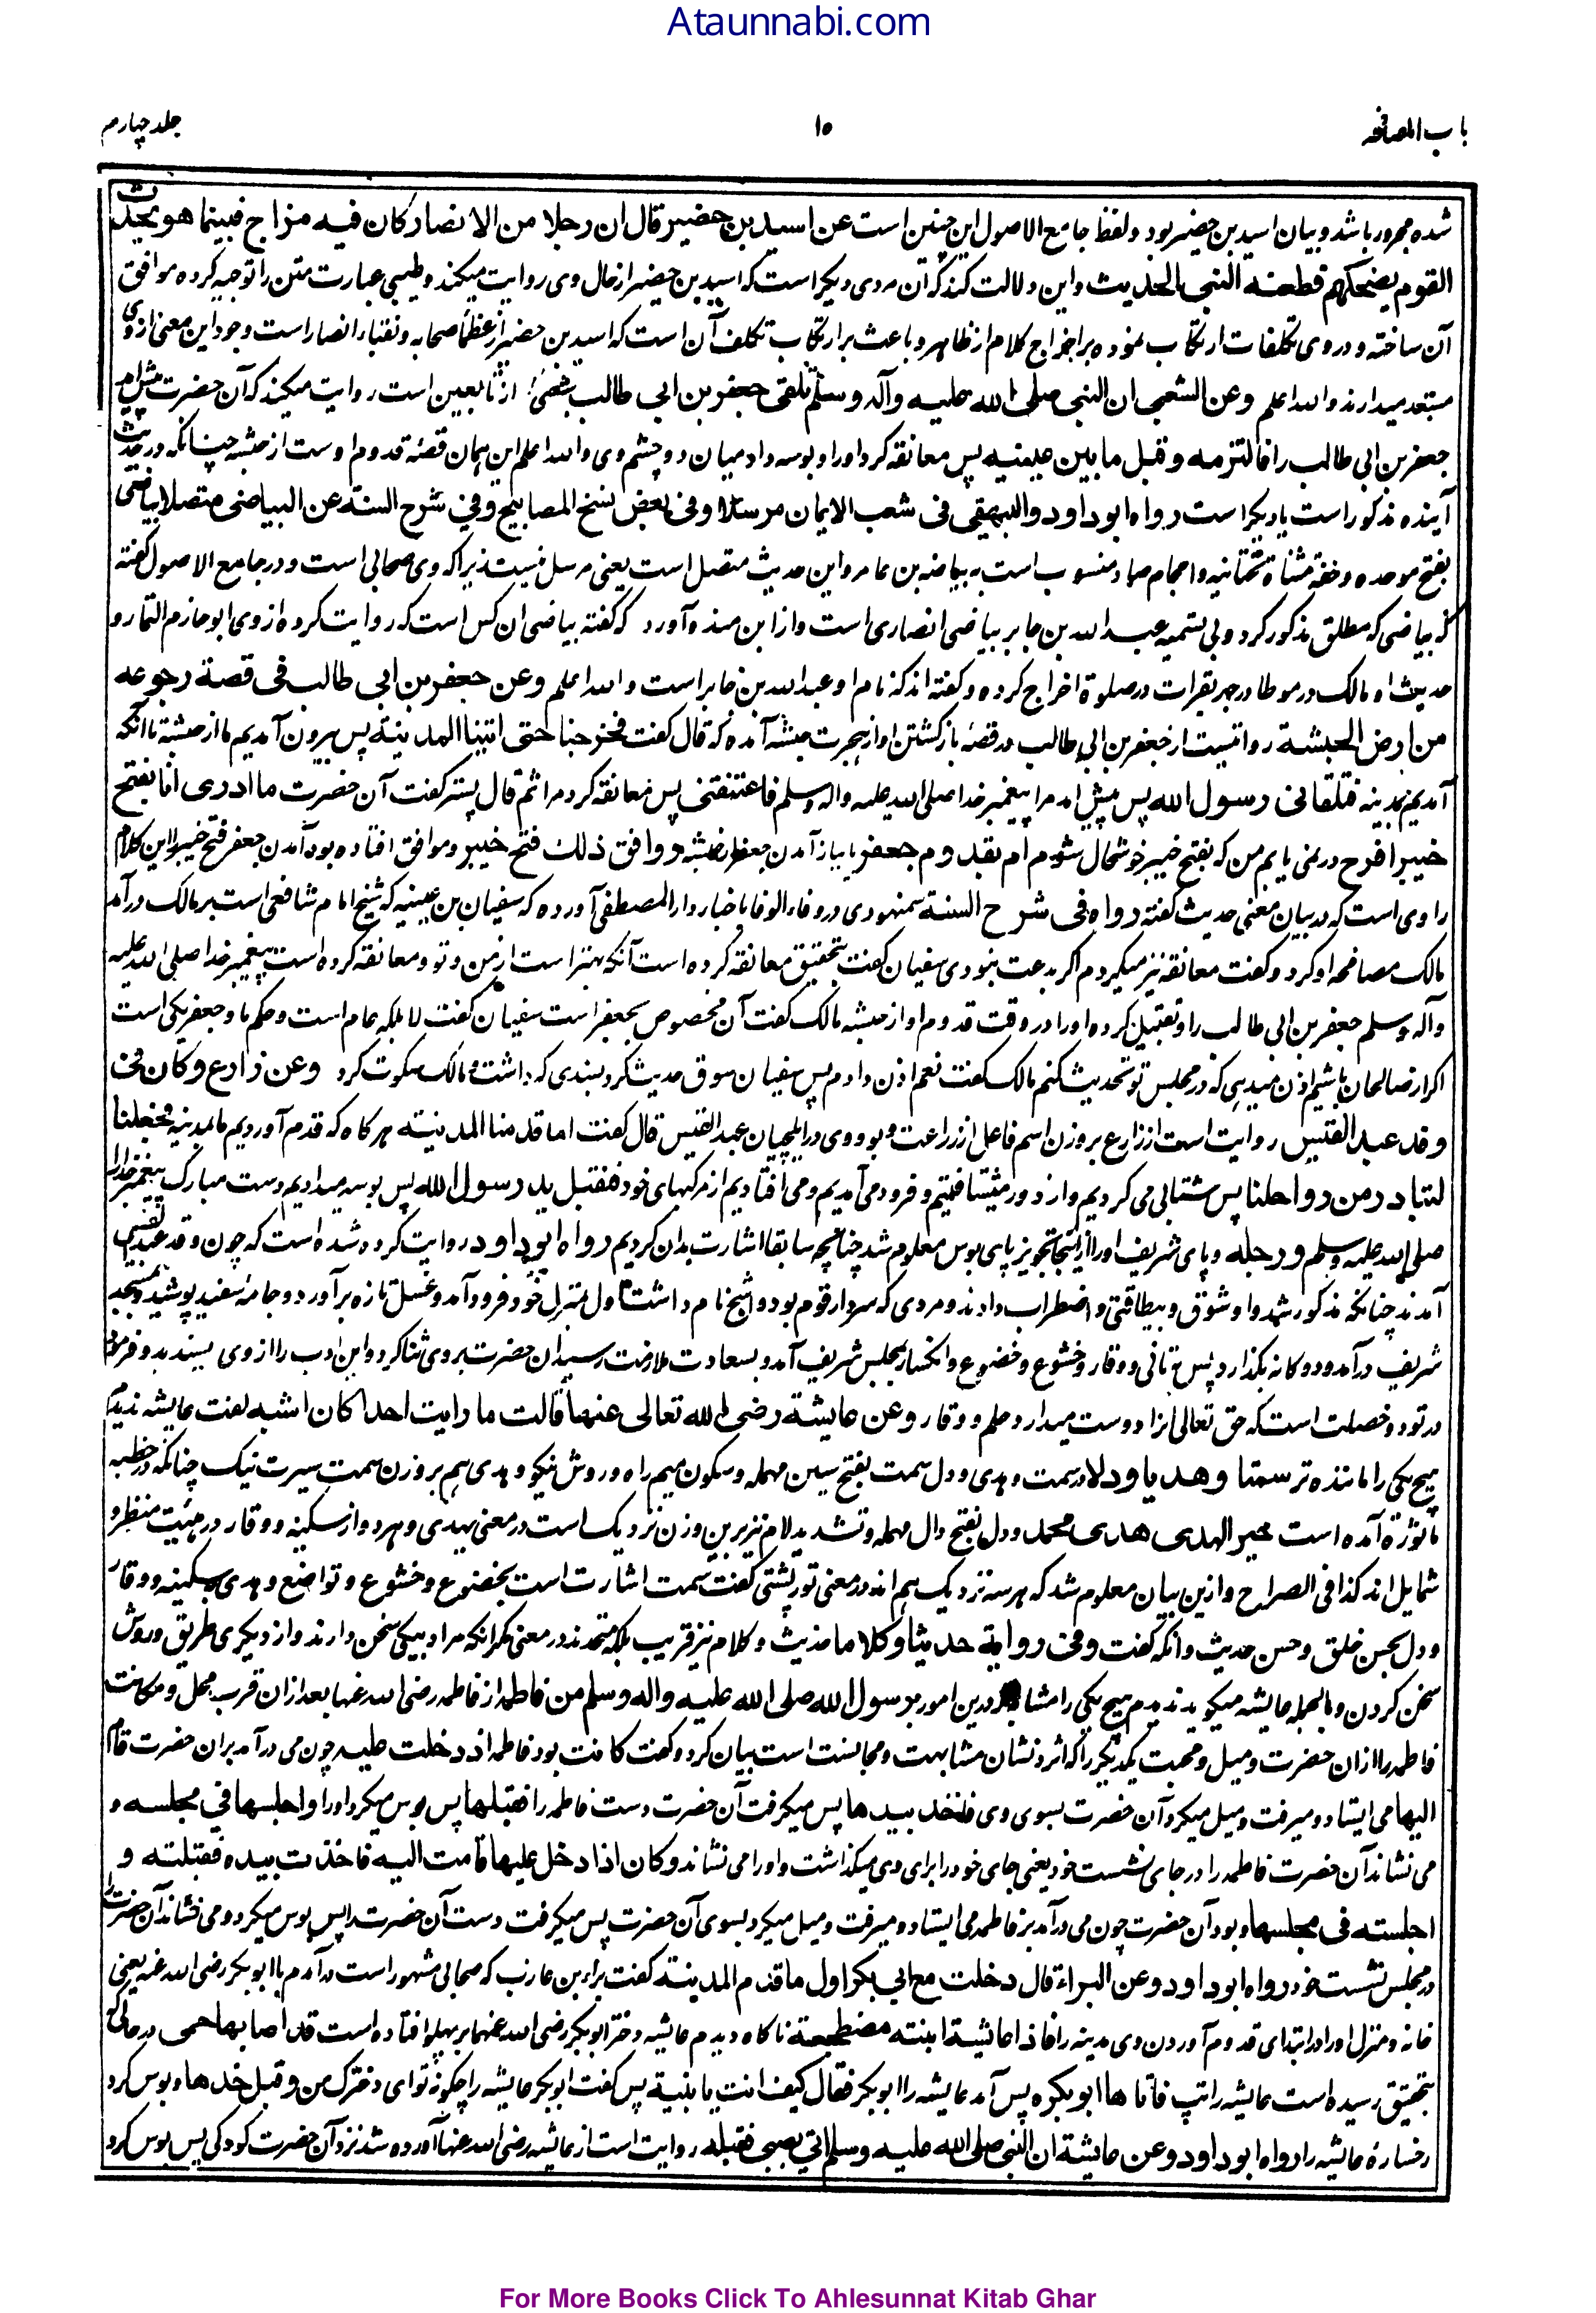 Ataunnabi.com
باب المصافحه
۱۰
جلد چهارم
شده مجرور باشد و بیان اسید بن حضیر بود و لفظ جامع الاصول این چنین است عن اسید بن حضیر قال ان رجلا من الانصار کان فیه مزاح فبینما هو یحدث
القوم یضحکهم فطعنه النبی الحدیث و این دلالت کند که آن مردی دیگر است که اسید بن حضیر از حال وی روایت میکند و طیبی عبارت متن را توجیه کرده موافق
آن ساخته و در وی تکلفات ارتکاب نموده بر اخراج کلام از ظاهر و باعث بر ارتکاب تکلف آن است که اسید بن حضیر از عظماء صحابه و نقباء انصار است و جود این معنی از وی
مستبعد میدارند والله اعلم وعن الشعبی ان النبی صلی الله علیه وآله وسلم تلقی جعفر بن ابی طالب شعبی از تابعین است روایت میکند که آن حضرت پیش آمد
جعفر بن ابی طالب را فالتزمه وقبل ما بین عینیه پس معانقه کرد او را و بوسه داد میان دو چشم وی والله اعلم این همان قصهٔ قدوم اوست از حبشه چنانکه در حدیث
آینده مذکور است یا دیگر است رواه ابو داود والبیهقی فی شعب الایمان مرسلا وفی بعض نسخ المصابیح وفی شرح السنة عن البیاضی متصلا بیاضی
بفتح موحده و خفه مثناة تحتانیه و اعجام ضاد منسوب است به بیاضه بن عامر و این حدیث متصل است یعنی مرسل نیست زیراکه وی صحابی است و در جامع الاصول گفته
که بیاضی که مطلق مذکور کرد و بی تسمیه عبد الله بن جابر بیاضی انصاری است و از ابن منده آورد که گفته بیاضی آن کس است که روایت کرده از وی ابو حازم التمار و
حدیث او مالک در موطا در جهر بقرات در صلوة اخراج کرده و گفته اند که نام او عبد الله بن جابر است والله اعلم وعن جعفر بن ابی طالب فی قصة رجوعه
من ارض الحبشة روایتست از جعفر بن ابی طالب در قصهٔ بازگشتن او از هجرت حبشه آمده که قال گفت فخرجنا حتی اتینا المدینة پس بیرون آمدیم ما از حبشه تا آنکه
آمدیم بمدینه فتلقانی رسول الله پس پیش آمد مرا پیغمبر خدا صلی الله علیه واله وسلم فاعتنقنی پس معانقه کرد مرا ثم قال پستر گفت آن حضرت ما ادری انا بفتح
خیبر افرح در نمی یابم من که بفتح خیبر خوشحال شوم ام بقدوم جعفر یا بباز آمدن جعفر از حبشه ووافق ذلک فتح خیبر و موافق افتاده بود آمدن جعفر فتح خیبر را این کلام
راوی است که در بیان معنی حدیث گفته رواه فی شرح السنة سمهودی در وفاء الوفا باخبار دار المصطفی آورده که سفیان بن عیینه که شیخ امام شافعی است بر مالک درآمد
مالک مصافحه او کرد و گفت معانقه نیز میکردم اگر بدعت نبودی سفیان گفت بتحقیق معانقه کرده است آنکه بهتر است از من و تو و معانقه کرده است پیغمبر خدا صلی الله علیه
وآله وسلم جعفر بن ابی طالب را و تقبیل کرده او را در وقت قدوم او از حبشه مالک گفت آن مخصوص بجعفر است سفیان گفت لا بلکه عام است و حکم ما و جعفر یکی است
اگر از صالحان باشیم اذن میدهی که در مجلس تو تحدیث کنم مالک گفت نعم اذن دادم پس سفیان سوق حدیث کرد بسندی که داشت و مالک سکوت کرد وعن زارع وکان فی
وفد عبد القیس روایت است از زارع بر وزن اسم فاعل از زراعت و بود وی در ایلچیان عبد القیس قال گفت لما قدمنا المدینة هرگاه که قدم آوردیم ما بمدینه فجعلنا
نتبادر من رواحلنا پس شتابی می کردیم و از دور میشتافتیم و فرود می آمدیم و می افتادیم از مرکبهای خود فنقبل ید رسول الله پس بوسه میدادیم دست مبارک پیغمبر خدا را
صلی الله علیه وسلم ورجله و پای شریف او را از اینجا تجویز پای بوس معلوم شد چنانچه سابقا اشارت بدان کردیم رواه ابو داود روایت کرده شده است که چون وفد عبد القیس
آمدند چنانکه مذکور شد و او شوق و بیطاقتی و اضطراب دادند و مردی که سردار قوم بود و اشج نام داشت اول بمنزل خود فرود آمد و غسل تازه برآورد و جامهٔ سفید پوشید و بمسجد
شریف درآمد و دوگانه بگذارد پس بتانی و وقار و خشوع و خضوع و انکسار بمجلس شریف آمد و بسعادت ملازمت رسید آن حضرت بر وی ثنا کرد و این ادب را از وی پسندید و فرمود
در تو دو خصلت است که حق تعالی آنرا دوست میدارد حلم و وقار وعن عایشة رضی الله تعالی عنها قالت ما رایت احدا کان اشبه گفت عایشه ندیدم
هیچ یکی را ماننده تر سمتا وهدیا ودلا در سمت و هدی و دل سمت بفتح سین مهمله و سکون میم راه و روش نیکو و هدی هم بر وزن سمت سیرت نیک چنانکه در خطبه
ماثوره آمده است خیر الهدی هدی محمد و دل بفتح دال مهمله و تشدید لام نیز برین وزن نزدیک است در معنی بهدی و هر دو از سکینه و وقار در هیئت و منظر و
شمایل اند کذا فی الصراح و ازین بیان معلوم شد که هر سه نزدیک هم اند در معنی تورپشتی گفت سمت اشارت است بخضوع و خشوع و تواضع و هدی بسکینه و وقار
و دل بحسن خلق و حسن حدیث و آنکه گفت وفی روایة حدیثا وکلاما حدیث و کلام نیز قریب بلکه متحدند در معنی مگر آنکه مراد بیکی سخن دارند و از دیگری طریق و روش
سخن کردن و بالجمله عایشه میگوید ندیدم هیچ یکی را مشابه تر درین امور برسول الله صلی الله علیه واله وسلم من فاطمة از فاطمه رضی الله عنها بعد ازان قرب محل و مکانت
فاطمه را ازان حضرت و میل و محبت یکدیگر را که اثر و نشان مشابهت و مجانست است بیان کرد و گفت کانت بود فاطمه اذا دخلت علیه چون می درآمد بران حضرت قام
الیها می ایستاد و میرفت و میل میکرد آن حضرت بسوی وی فاخذ بیدها پس میگرفت آن حضرت دست فاطمه را فقبلها پس بوس میکرد او را واجلسها فی مجلسه و
می نشاند آن حضرت فاطمه را در جای نشست خود یعنی جای خود را برای وی میگذاشت و او را می نشاند وکان اذا دخل علیها قامت الیه فاخذت بیده فقبلته و
اجلسته فی مجلسها و بود آن حضرت چون می درآمد بر فاطمه می ایستاد و میرفت و میل میکرد بسوی آن حضرت پس میگرفت دست آن حضرت را پس بوس میکرد و می نشاند آن حضرت را
در مجلس نشست خود رواه ابو داود وعن البراء قال دخلت مع ابی بکر اول ما قدم المدینة گفت براء بن عازب که صحابی مشهور است درآمدم با ابو بکر رضی الله عنه یعنی
خانه و منزل او را در ابتدای قدوم آوردن وی مدینه را فاذا عائشة ابنته مضطجعة ناگاه دیدم عایشه دختر ابو بکر رضی الله عنهما بر پهلو افتاده است قد اصابها حمی در حالی که
بتحقیق رسیده است عایشه را تپ فاتاها ابو بکر پس آمد عایشه را ابو بکر فقال کیف انت یا بنیة پس گفت ابو بکر عایشه را چگونه تو ای دخترک من وقبل خدها و بوس کرد
رخسارهٔ عایشه را رواه ابو داود وعن عایشة ان النبی صلی الله علیه وسلم اتی بصبی فقبله روایت است از عایشه رضی الله عنها آورده شد نزد آن حضرت کودکی پس بوس کرد
For More Books Click To Ahlesunnat Kitab Ghar